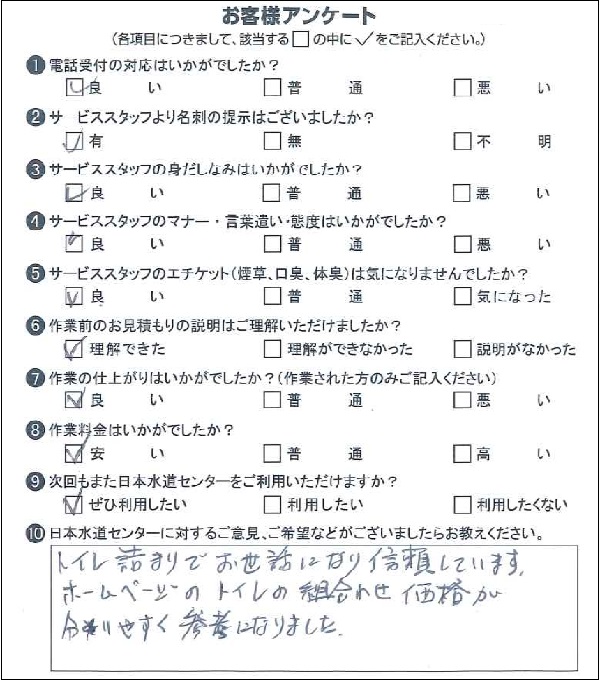 お客様アンケート
(各項目につきまして、該当する□の中に✓をご記入ください。)
❶電話受付の対応はいかがでしたか?
☑良い □普通 □悪い
❷サービススタッフより名刺の提示はございましたか?
☑有 □無 □不明
❸サービススタッフの身だしなみはいかがでしたか?
☑良い □普通 □悪い
❹サービススタッフのマナー・言葉遣い・態度はいかがでしたか?
☑良い □普通 □悪い
❺サービススタッフのエチケット(煙草、口臭、体臭)は気になりませんでしたか?
☑良い □普通 □気になった
❻作業前のお見積もりの説明はご理解いただけましたか?
☑理解できた □理解ができなかった □説明がなかった
❼作業の仕上がりはいかがでしたか?(作業された方のみご記入ください)
☑良い □普通 □悪い
❽作業料金はいかがでしたか?
☑安い □普通 □高い
❾次回もまた日本水道センターをご利用いただけますか?
☑ぜひ利用したい □利用したい □利用したくない
❿日本水道センターに対するご意見、ご希望などがございましたらお教えください。
トイレ詰まりでお世話になり信頼しています。
ホームページのトイレの組合わせ価格が
分りやすく参考になりました。